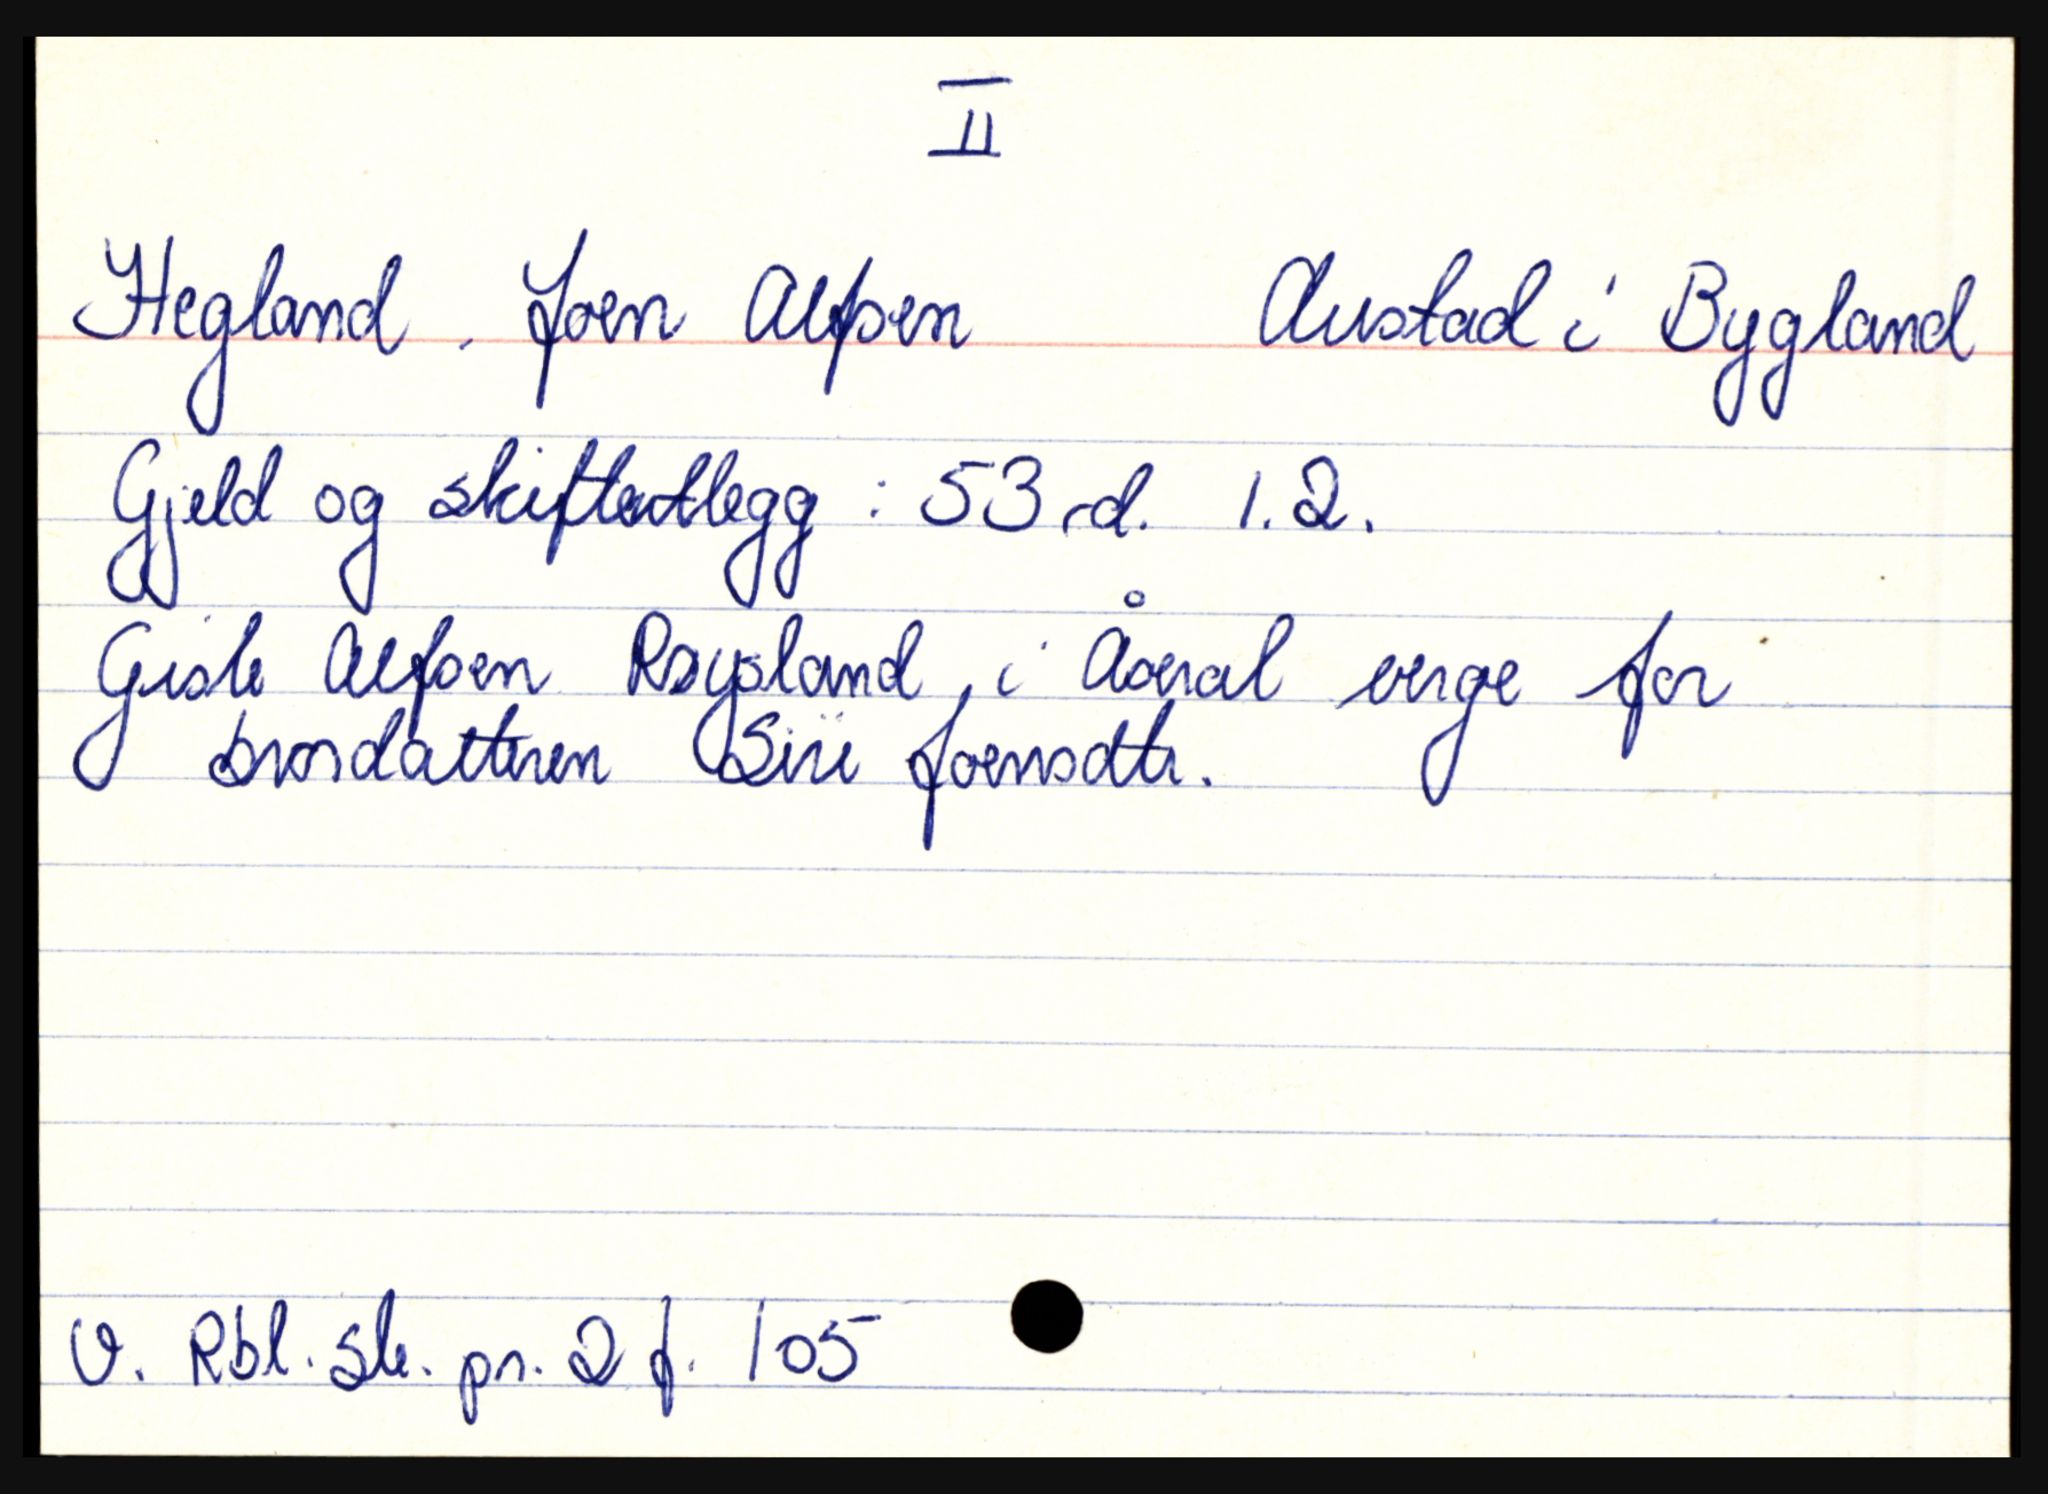 II
Hegland, Joen Alfsen Austad i Bygland
Gjeld og skifteutlegg : 53 rd. 1.2.
Gisle Alfsen Røysland, i Åseral verge for
brordatteren Siri Joensdtr.
V. Rbl. sk. pr. 2 f. 105